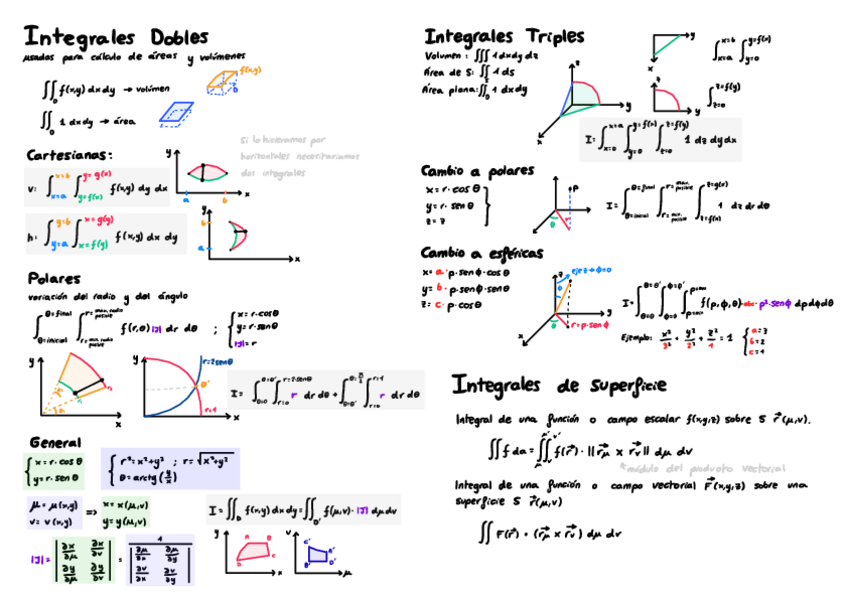 Integrales Dobles
usados para cálculo de áreas y volúmenes
∬_D f(x,y) dx dy → volúmen
f(x,y)
D
∬_D 1 dx dy → área
Si lo hiciéramos por
horizontales necesitaríamos
dos integrales
Cartesianas:
v: ∫_{x=a}^{x=b} ∫_{y=f(x)}^{y=g(x)} f(x,y) dy dx
y
a b x
h: ∫_{y=a}^{y=b} ∫_{x=f(y)}^{x=g(y)} f(x,y) dx dy
y
b
a
x
Polares
variación del radio y del ángulo
∫_{θ=inicial}^{θ=final} ∫_{r=min. radio posible}^{r=max. radio posible} f(r,θ) |J| dr dθ ;
x=r·cosθ
y=r·senθ
|J|=r
y
x
y
r=2senθ
θ'
r=1
x
I= ∫_{θ=0}^{θ=θ'} ∫_{r=0}^{r=2senθ} r dr dθ + ∫_{θ=θ'}^{θ=π/2} ∫_{r=0}^{r=1} r dr dθ
General
x=r·cosθ
y=r·senθ
r²=x²+y² ; r=√(x²+y²)
θ=arctg(y/x)
μ=μ(x,y)
v=v(x,y)
=>
x=x(μ,v)
y=y(μ,v)
I=∬_D f(x,y) dx dy=∬_D' f(μ,v)·|J| dμ dv
|J|= |∂x/∂μ ∂x/∂v ; ∂y/∂μ ∂y/∂v| = 1 / |∂μ/∂x ∂μ/∂y ; ∂v/∂x ∂v/∂y|
y
A B
D C
x
v
A' B'
D' C'
μ
Integrales Triples
Volumen: ∭ 1 dx dy dz
Área de S: ∬ 1 ds
Área plana: ∬_D 1 dx dy
z
y
x
y
x
∫_{x=a}^{x=b} ∫_{y=0}^{y=f(x)}
z
y
∫_{z=0}^{z=f(y)}
I= ∫_{x=0}^{x=a} ∫_{y=0}^{y=f(x)} ∫_{z=0}^{z=f(y)} 1 dz dy dx
Cambio a polares
x=r·cosθ
y=r·senθ
z=z
P
θ r
I= ∫_{θ=inicial}^{θ=final} ∫_{r=min. posible}^{r=max. posible} ∫_{z=f(x)}^{z=g(x)} 1 dz dr dθ
Cambio a esféricas
x=a·p·senϕ·cosθ
y=b·p·senϕ·senθ
z=c·p·cosθ
z
eje z→ϕ=0
y
x
θ
r=p·senϕ
f(p,ϕ,θ)·abc·p²·senϕ dp dϕ dθ
Ejemplo: x²/3² + y²/2² + z²/1 = 1
a=3
b=2
c=1
Integrales de Superficie
Integral de una función o campo escalar f(x,y,z) sobre S r⃗(μ,v).
∬ f da = ∬ f(r⃗)·||r⃗μ x r⃗v|| dμ dv
*módulo del producto vectorial
Integral de una función o campo vectorial F⃗(x,y,z) sobre una
superficie S r⃗(μ,v)
∬ F(r⃗)·(r⃗μ x r⃗v) dμ dv